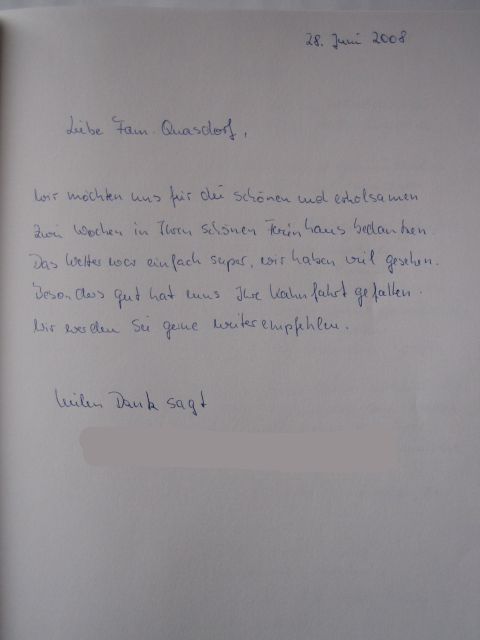 28. Juni 2008
Liebe Fam. Quasdorf,
wir möchten uns für die schönen und erholsamen
zwei Wochen in Ihrem schönen Ferienhaus bedanken.
Das Wetter war einfach super, wir haben viel gesehen.
Besonders gut hat uns Ihre Kahnfahrt gefallen.
Wir werden Sie gerne weiterempfehlen.
Vielen Dank sagt